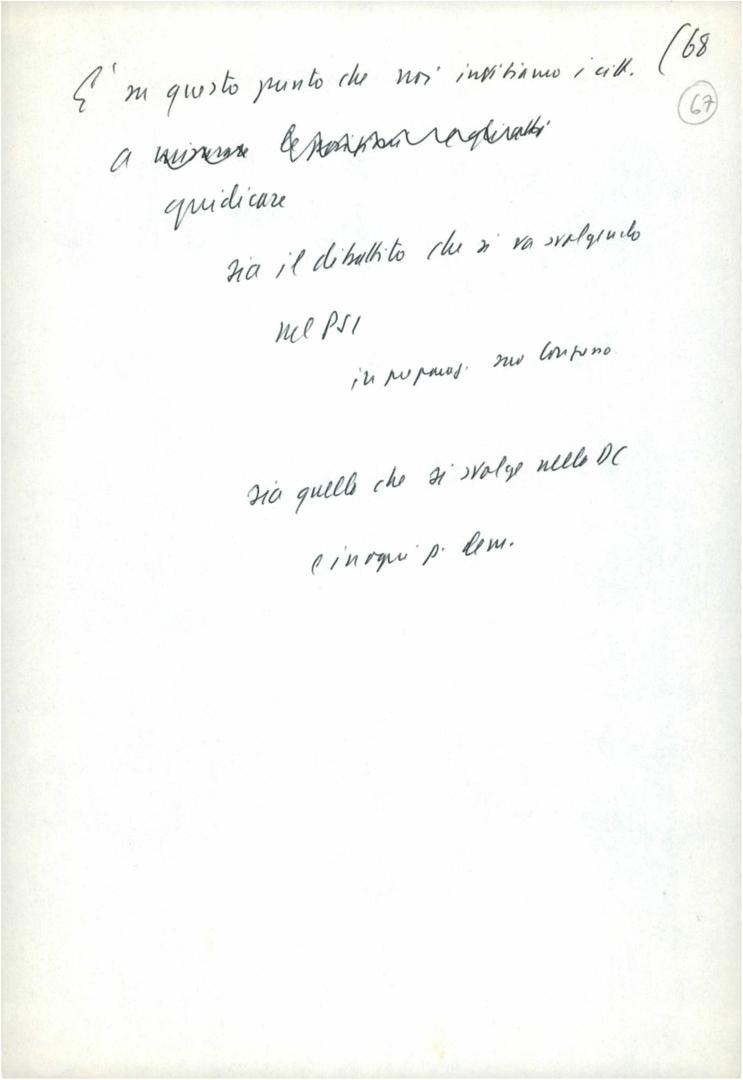 (68
67
E' su questo punto che noi invitiamo i citt.
a misurare le posizioni e gli atti
giudicare
sia il dibattito che si va svolgendo
nel PSI
in preparaz. suo Congresso
sia quello che si svolge nella DC
e in ogni p. dem.